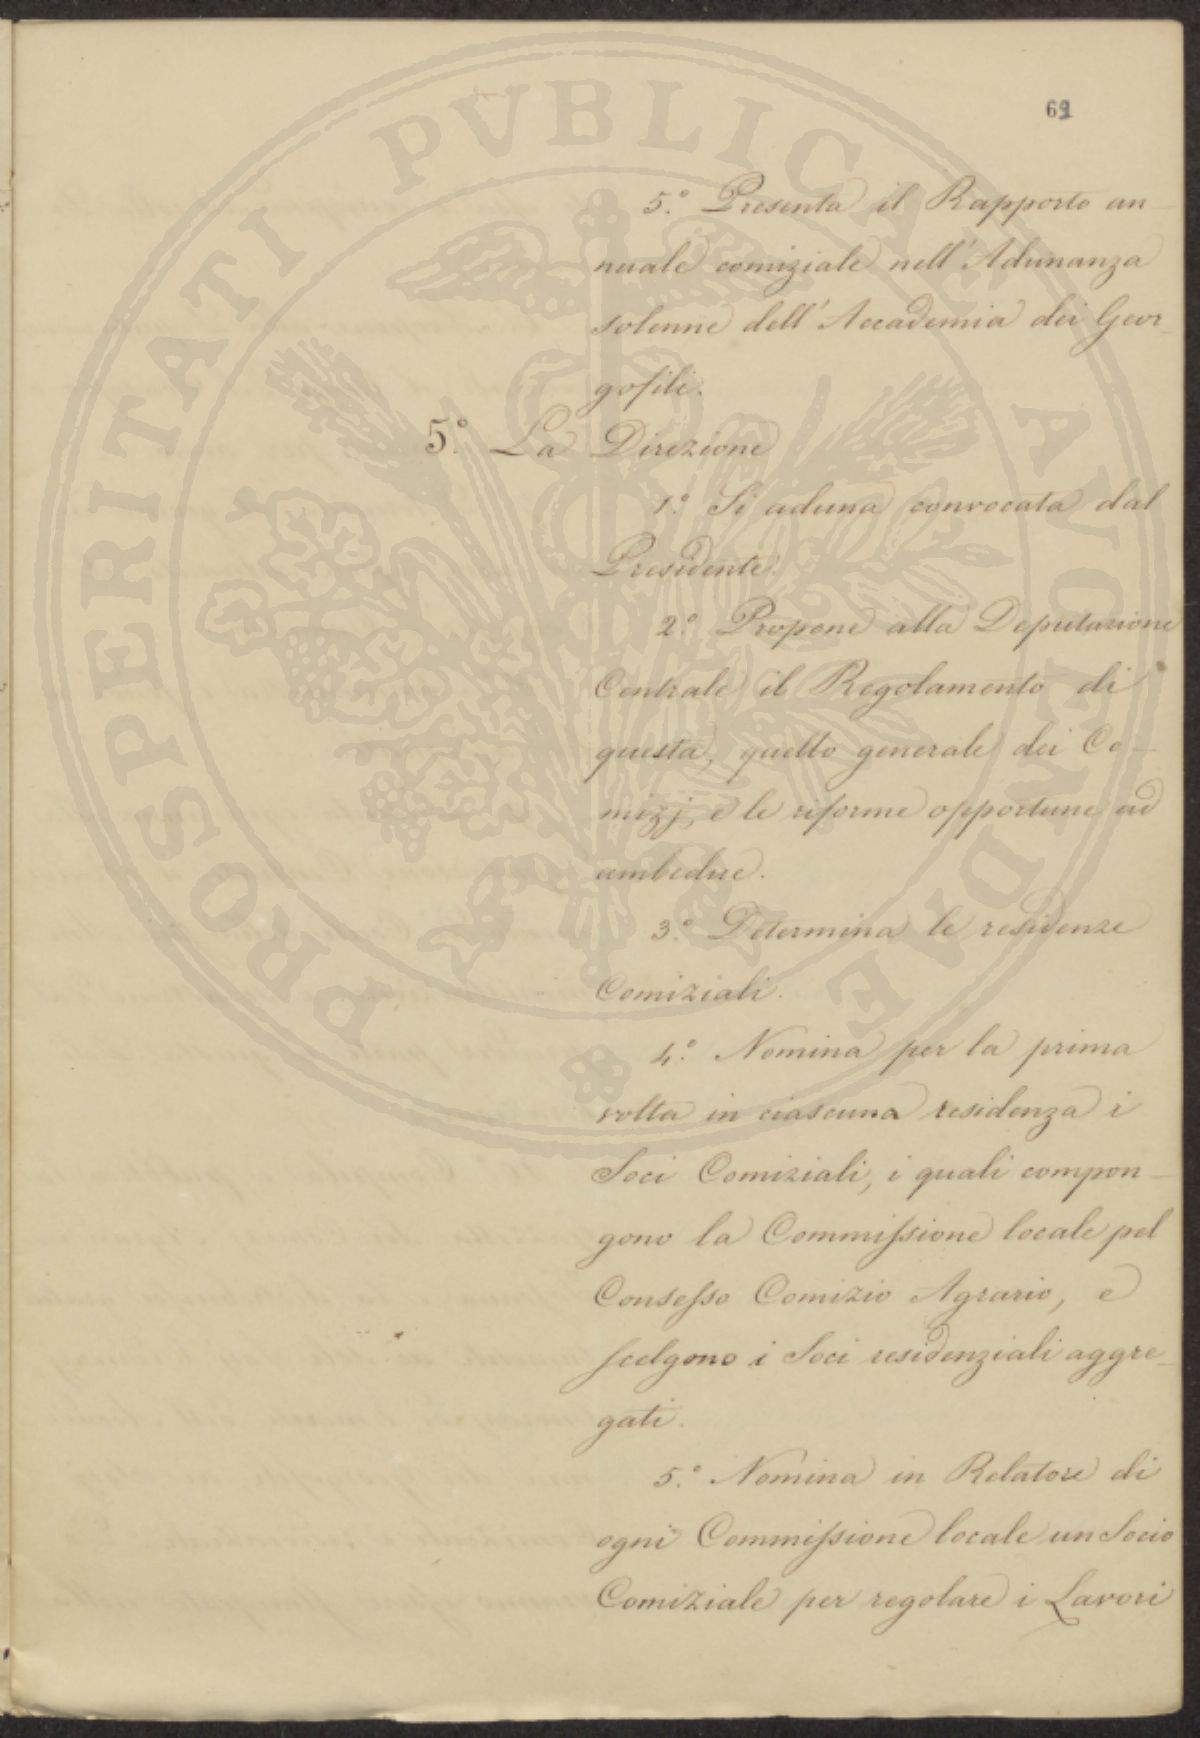 69
5.° Presenta il Rapporto an-
nuale comiziale nell'Adunanza
solenne dell'Accademia dei Geor-
gofili.
5.° La Direzione
1.° Si aduna convocata dal
Presidente.
2.° Propone alla Deputazione
Centrale il Regolamento di
questa, quello generale dei Co-
mizj, e le riforme opportune ad
ambedue.
3.° Determina le residenze
Comiziali.
4.° Nomina per la prima
volta in ciascuna residenza i
Soci Comiziali, i quali compon-
gono la Commissione locale pel
Consesso Comizio Agrario, e
scelgono i Soci residenziali aggre-
gati.
5.° Nomina in Relatore di
ogni Commissione locale un Socio
Comiziale per regolare i Lavori
PROSPERITATI PVBLICAE AVGENDAE